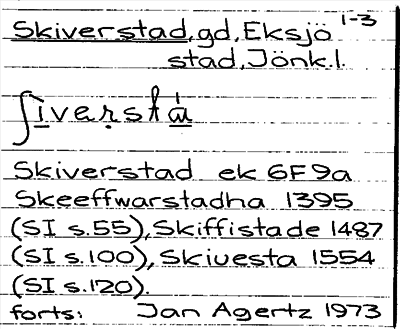 Skiverstad, gd, Eksjö 1-3
stad, Jönk.l.
Skiverstad ek 6F9a
Skeeffwarstadha 1395
(SI s.55), Skiffistade 1487
(SI s.100), Skivesta 1554
(SI s.120).
forts: Jan Agertz 1973